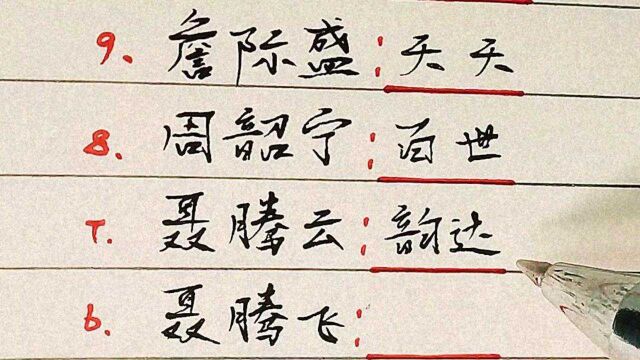 9. 詹际盛:天天
8. 周韶宁:百世
7. 聂腾云:韵达
6. 聂腾飞: